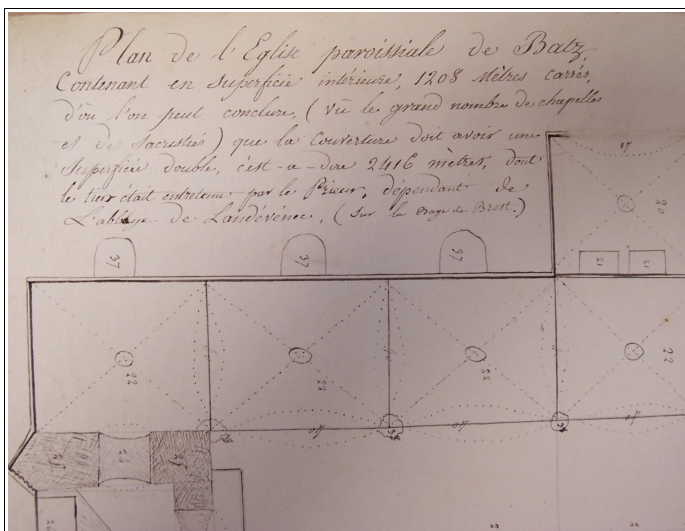 Plan de l'Eglise paroissiale de Batz,
Contenant en superficie intérieure, 1208 Mètres carrés,
d'où l'on peut conclure, (vû le grand nombre de chapelles
et de Sacristies) que la Couverture doit avoir une
Superficie double, c'est-a-dire 2416 mètres, dont
le tiers était entretenu par le Prieur, dépendant de
L'abbaye de Landévénec, (sur la Baye de Brest.)
20
37 37 37
21 21
22 22 22 22
40 40 40